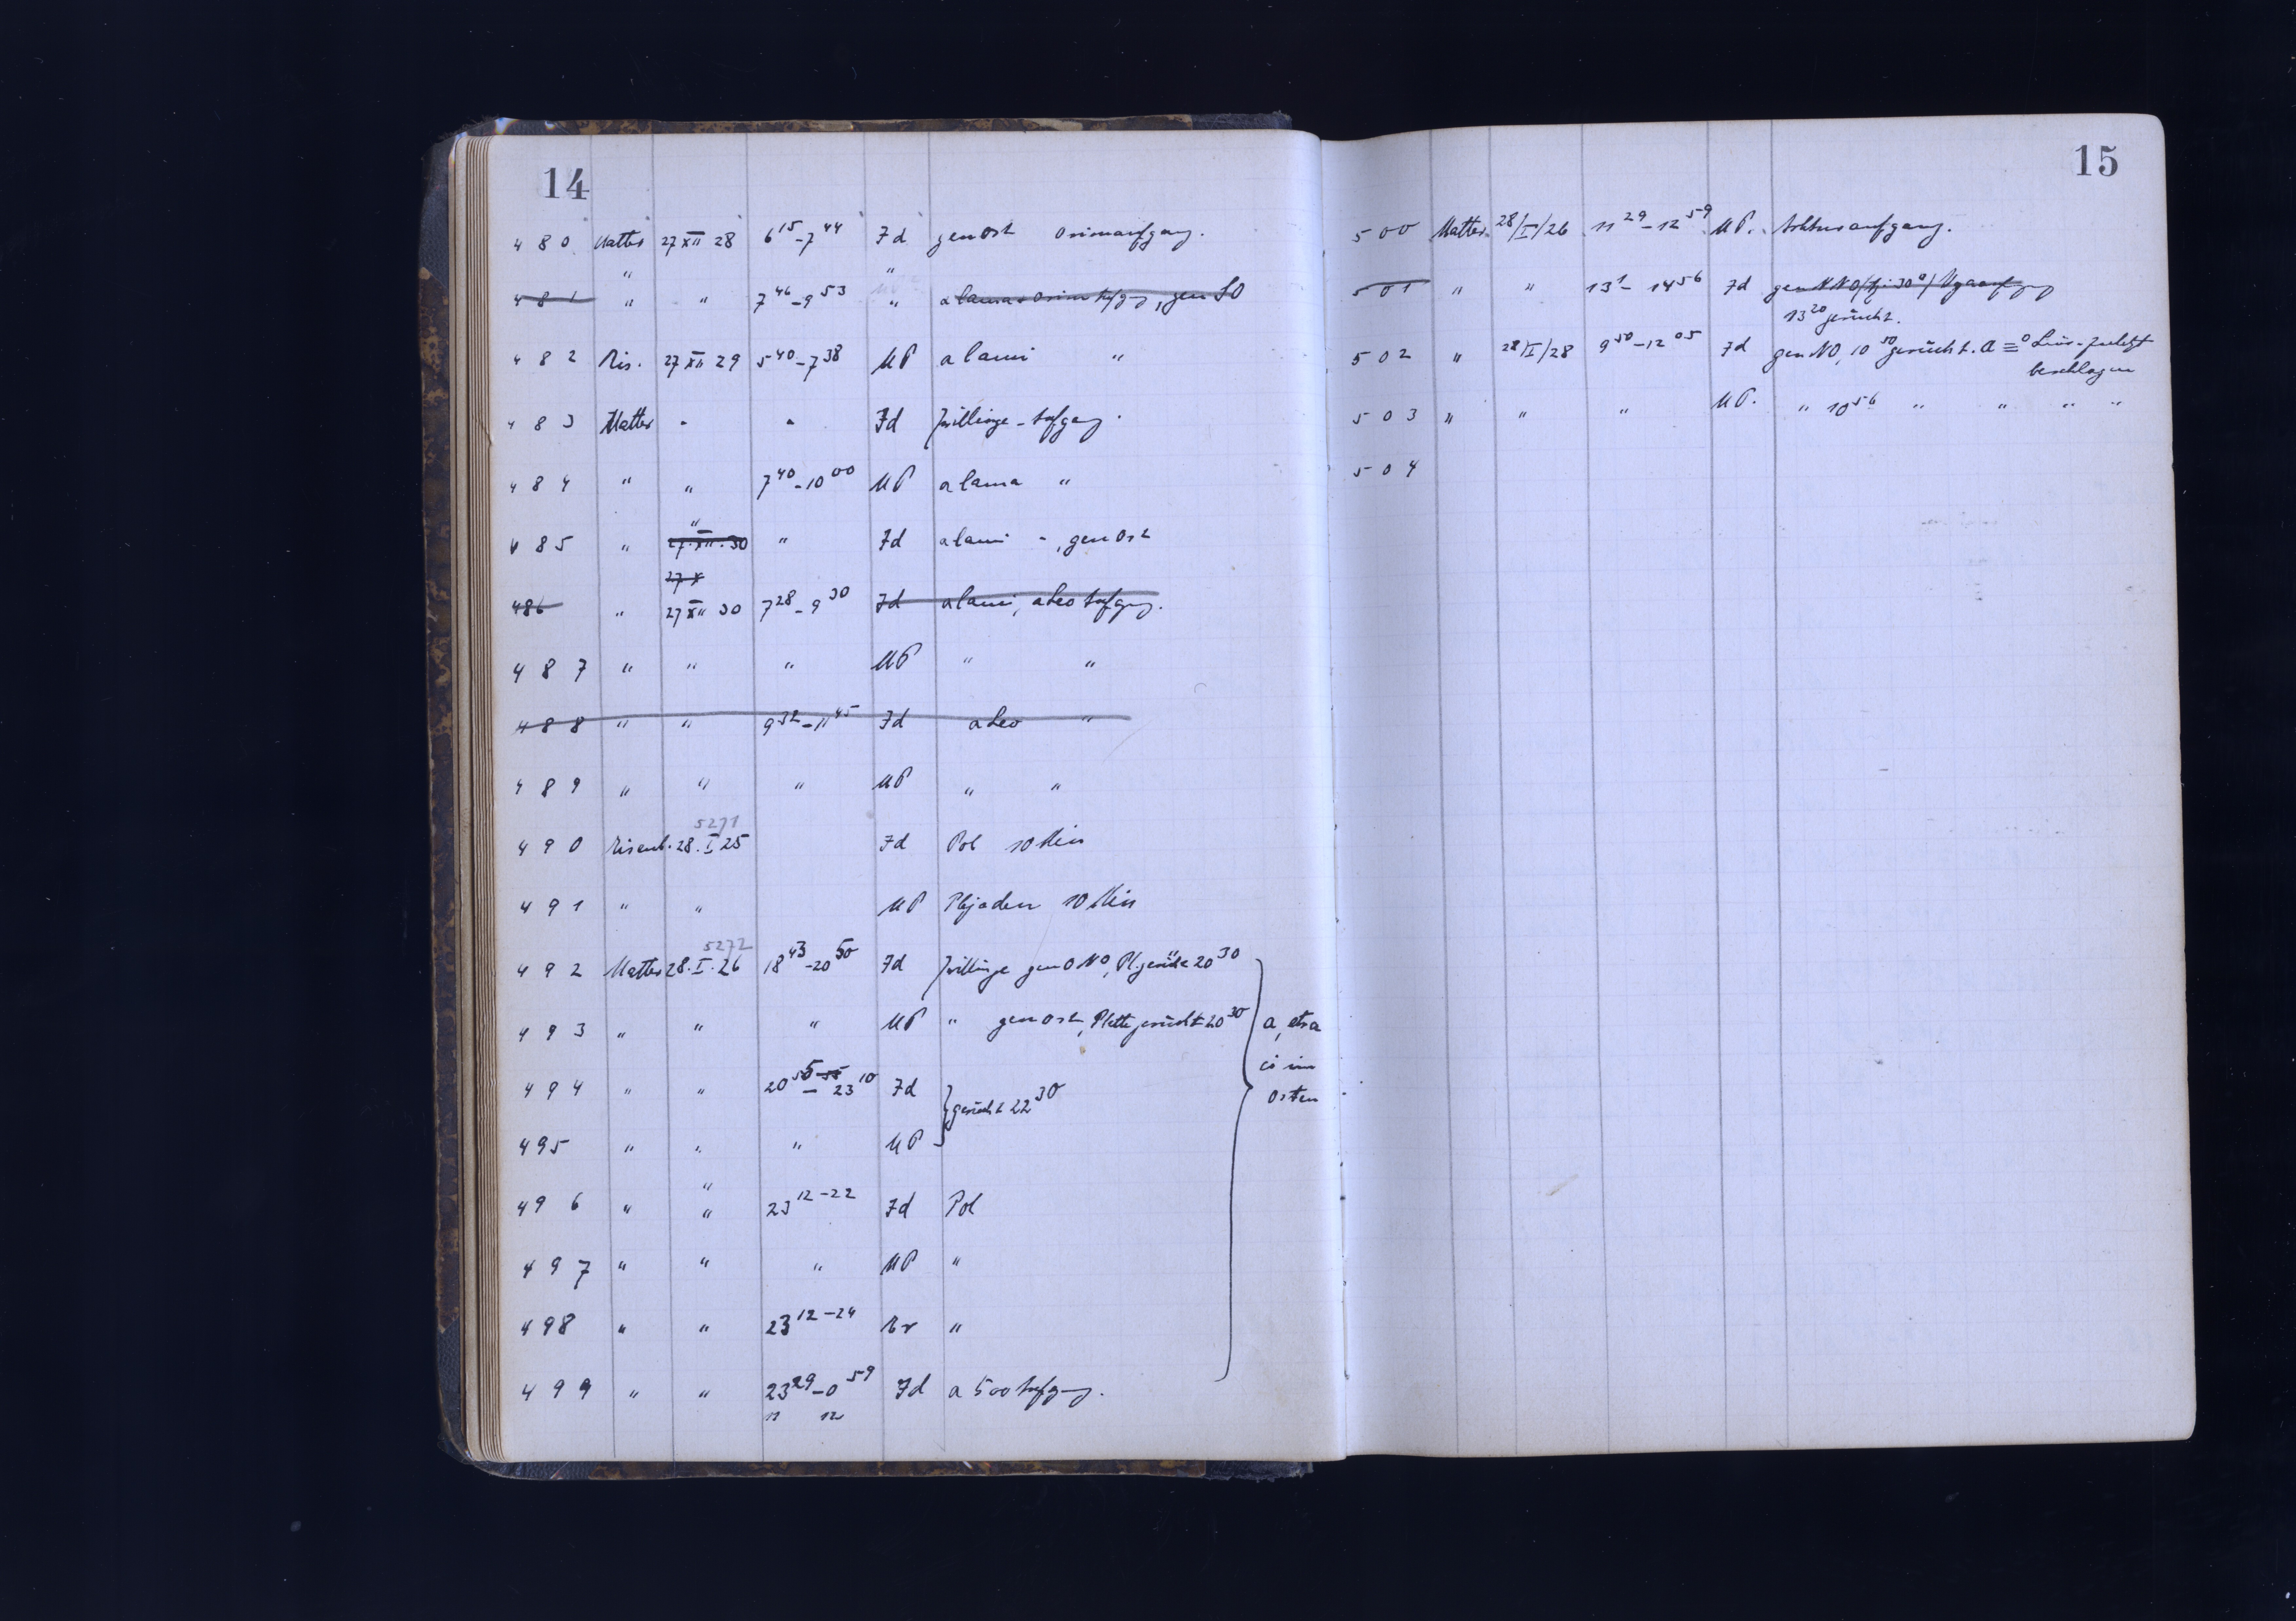 14
480 Matter 27 XII 28 6 15 - 7 44 Fd gen Ost Orionaufgang.
" "
481 " " 7 46 - 9 53 " , gen SO
482 Ris. 27 XII 29 5 40 - 7 38 UP a lami "
483 Matter " " Fd Zwillinge-Aufgang.
484 " " 7 40 - 10 00 UP a lama "
"
485 " 27.XII.30 " Fd a lami " , gen Ost
27 X
486 " 27 XII 30 7 28 - 9 30 Fd a lami, a Leo Aufgang.
487 " " " UP " "
488 " " 9 32 - 11 45 Fd a Leo "
489 " " " UP " "
5271
490 28. I 25 Fd Pol 10 Min
491 " " UP Plejaden 10 Min
5272
492 Matter 28. I. 26 18 43 - 20 50 Fd Zwillinge gen ONO, Pl. 20 30
493 " " " UP " gen Ost, Platte gerückt 20 30 a,
494 " " 20 55 - 23 10 Fd im
} gerückt 22 30 Osten
495 " " " UP
"
496 " " 23 12 - 22 Fd Pol
497 " " " UP "
498 " " 23 12 - 24 "
499 " " 23 29 - 0 59 Fd a 500 Aufgang.
11 12
15
500 Matter 28/I/26 11 29 - 12 59 UP. Arkturaufgang.
501 " " 13 1 - 14 56 Fd gen NNO / 30° / Wegaaufgang
13 20 gerückt.
502 " 28/I/28 9 50 - 12 05 Fd gen NO, 10 50 gerückt. zuletzt
beschlagen
503 " " " UP. " 10 56 " " " "
504